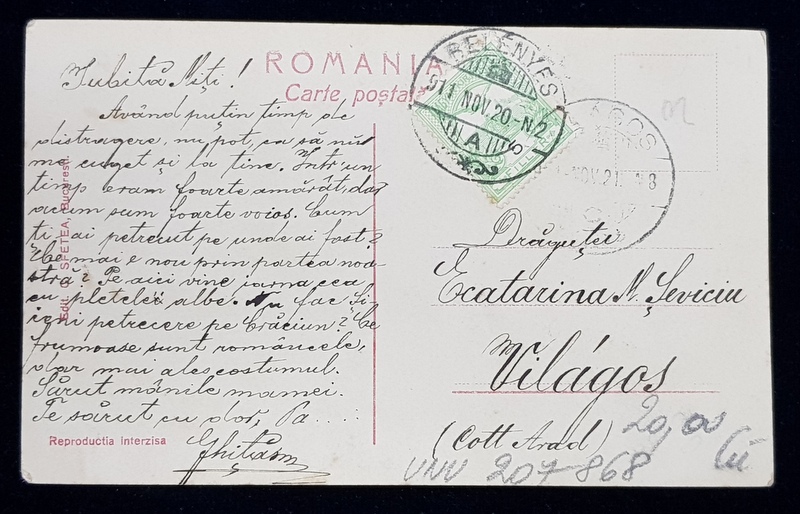 ROMANIA
Carte poștală
Iubită Niți!
Având puțin timp de
distragere, nu pot, ca să nu
me cuget și la tine. Într'un
timp eram foarte amărât, dar
acum sum foarte voios. Cum
ti-ai petrecut pe unde ai fost?
Ce mai e nou prin partea noa-
stră? Pe aici vine iarna cea
cu pletele albe. Nu fac
petrecere pe Crăciun? Ce
frumoase sunt româncele,
dar mai ales costumul.
Sărut mânile mamei.
Te sărut cu dor, Pa.....
Edit. SFETEA, Bucuresti
Reproductia interzisa
BELÉNYES
911 NOV.20-N2
A
ÁGOS
NOV.21. N8
Drăguței
Ecatarina N. Șeviciu
Világos
(Cott Arad)
20,00
207-868